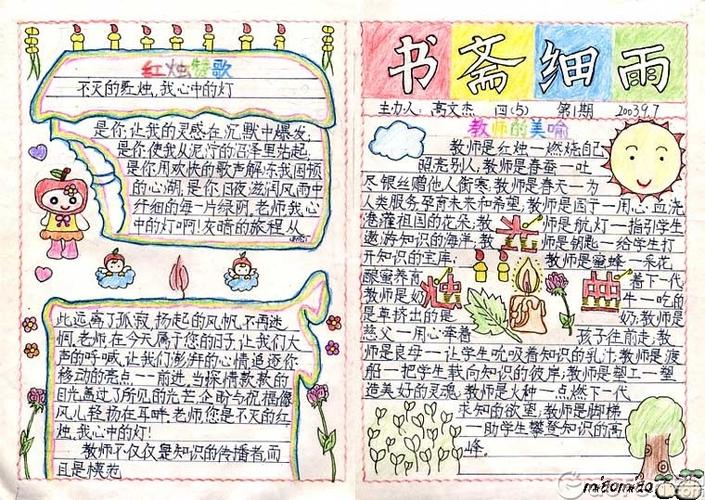 红烛赞歌
不灭的红烛,我心中的灯
是你让我的灵感在沉默中爆发,
是你使我从泥泞的沼泽里站起,
是你用欢快的歌声解冻我困顿
的心湖,是你日夜滋润风雨中
纤细的每一片绿阴,老师我心
中的灯啊!友暗的旅程从
此远离了孤寂,扬起的风帆,不再迷
惘,老师,在今天属于您的日子,让我们大
声的呼喊,让我们澎湃的心情追逐你
移动的亮点一一前进,当深情款款的
目光,高过了所见的光芒,企盼与祝福像
风儿轻扬在耳畔,老师您是不灭的红
烛,我心中的灯!
教师不仅仅是知识的传播者,而
且是模范
书斋细雨
主办人:高文杰 四(5) 第1期 2003.9.7
教师的美喻
教师是红烛一燃烧自己
照亮别人,教师是春蚕一吐
尽银丝赠他人衔寒,教师是春天一为
人类服务孕育未来和希望,教师是园丁一用心血浇
港灌祖国的花朵;教师是航灯一指引学生
遨游知识的海洋,教师是钥匙一给学生打
开知识的宝库;教师是蜜蜂一采花
酿蜜养育着下一代
教师是奶牛一吃的
是草挤出的是奶,教师是
慈父一用心牵着孩子往前走;教
师是良母一让学生吮吸着知识的乳汁;教师是渡
船一把学生载向知识的彼岸;教师是塑工一塑
造美好的灵魂,教师是火种一点燃下一代
求知的欲望;教师是脚梯
一助学生攀登知识的高
峰。
烛光曲
miaomiao